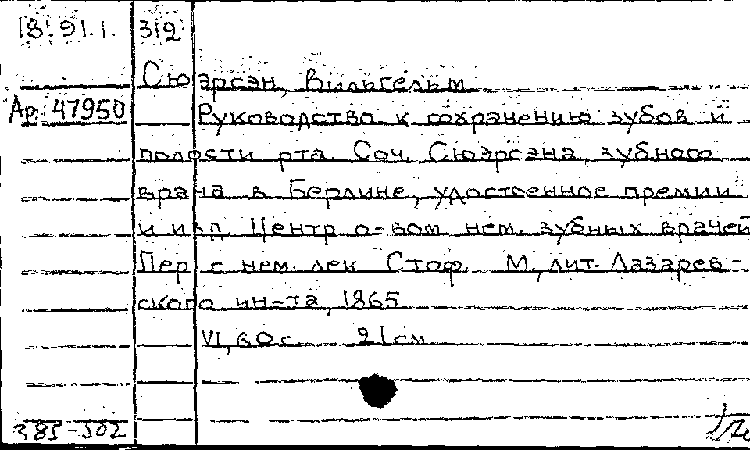 18.91.1. 312
Сюэрсэн, Вильгельм
Ар. 47950 Руководство к сохранению зубов и
полости рта. Соч. Сюэрсэна, зубного
врача в Берлине, удостоенное премии
и изд. Центр. о-вом нем. зубных врачей
Пер. с нем. лек. Стоф. М., лит. Лазарев-
ского ин-та, 1865
VI, 60 с. 21 см
385-502